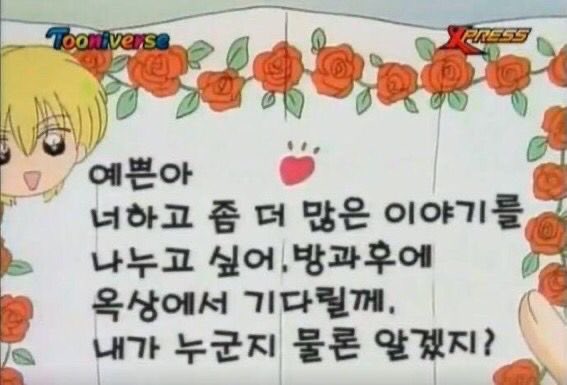 Tooniverse
XPRESS
예쁜아
너하고 좀 더 많은 이야기를
나누고 싶어.방과후에
옥상에서 기다릴께.
내가 누군지 물론 알겠지?